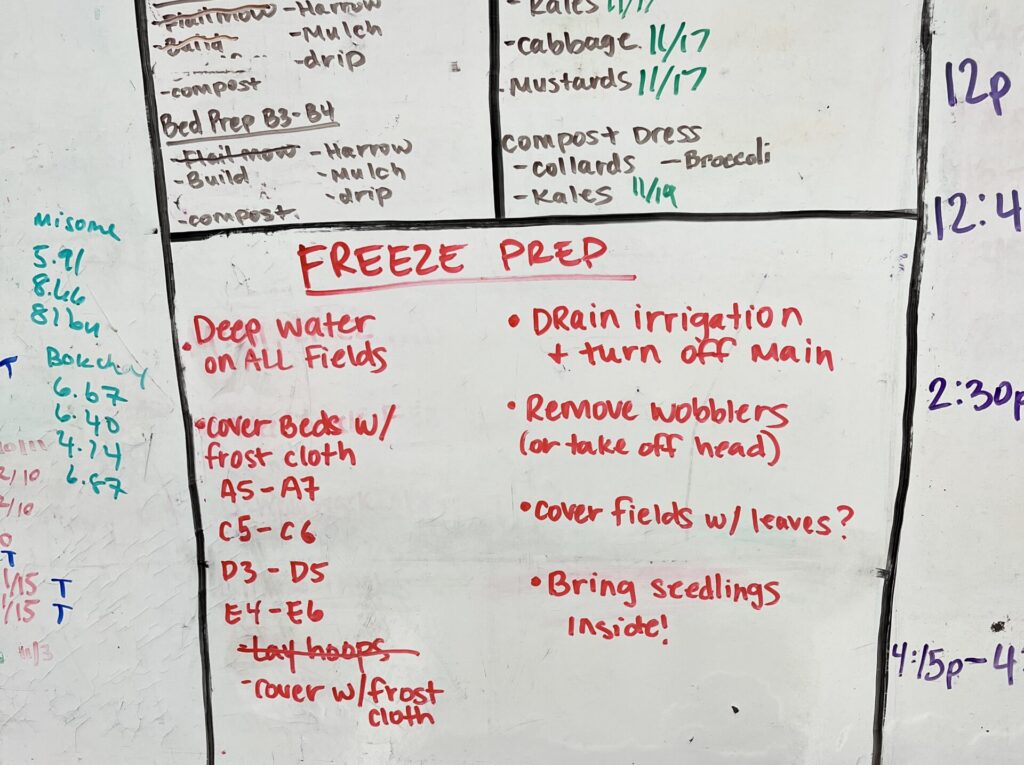 Flail mow
- Harrow
- Build
- Mulch
- drip
- compost
Bed Prep B3-B4
- Flail mow
- Harrow
- Build
- Mulch
- drip
- compost.
- Kales 11/17
- cabbage. 11/17
- Mustards 11/17
compost Dress
- collards - Broccoli
- Kales 11/19
12p
12:4
2:30p
4:15p-4:
Misome
5.91
8.66
Bokchoy
6.67
6.40
4.74
6.87
T
2/10
2/10
T
1/15 T
1/15 T
11/3
FREEZE PREP
• Deep water
on ALL Fields
• cover Beds w/
frost cloth
A5-A7
C5-C6
D3-D5
E4-E6
- Lay hoops
- cover w/ frost
cloth
• DRain irrigation
+ turn off Main
• Remove wobblers
(or take off head)
• cover fields w/ leaves?
• Bring seedlings
inside!